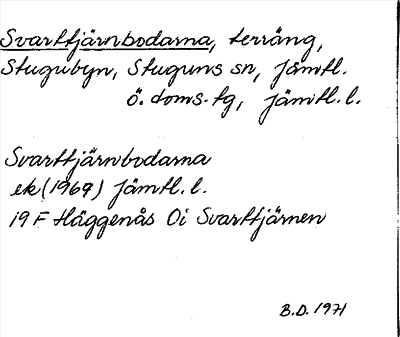 Svarttjärnbodarna, terräng,
Stugubyn, Stuguns sn, Jämtl.
ö. doms. tg, Jämtl. l.
Svarttjärnbodarna
ek (1969) Jämtl. l.
19 F Häggenås Oi Svarttjärnen
B.D. 1971